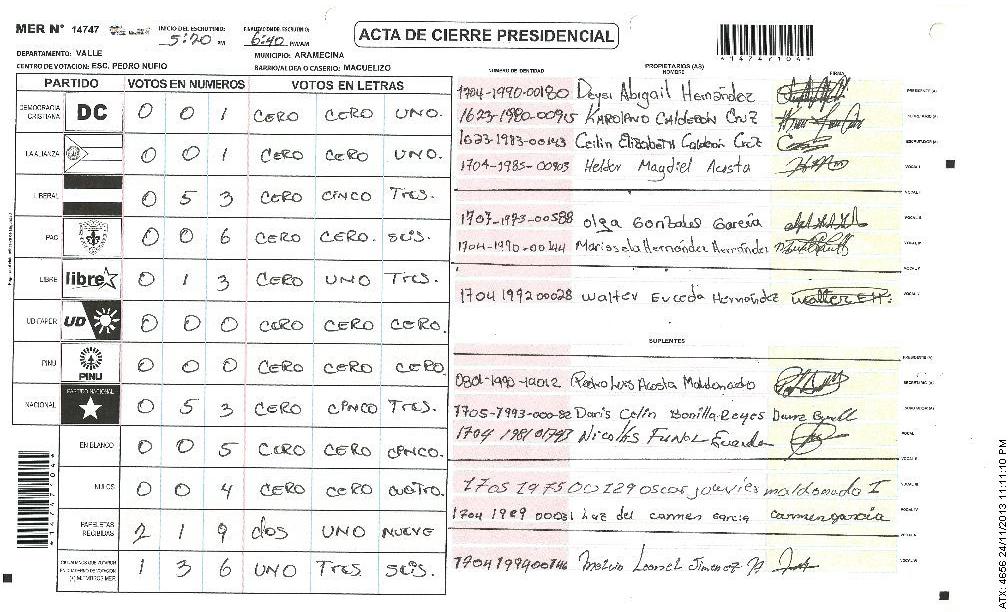 MER N° 14747
INICIO DEL ESCRUTINIO: 5:20 PM
FINALIZACION ESCRUTINIO: 6:40 PM/AM
ACTA DE CIERRE PRESIDENCIAL
*1474704*
DEPARTAMENTO: VALLE
MUNICIPIO: ARAMECINA
CENTRO DE VOTACION: ESC. PEDRO NUFIO
BARRIO/ALDEA O CASERIO: MACUELIZO
PARTIDO VOTOS EN NUMEROS VOTOS EN LETRAS
DEMOCRACIA CRISTIANA DC 0 0 1 CERO CERO UNO.
LA ALIANZA 0 0 1 CERO CERO UNO.
LIBERAL 0 5 3 CERO CINCO TRES.
PAC 0 0 6 CERO CERO. SEIS.
LIBRE libre 0 1 3 CERO UNO TRES.
UD FAPER UD 0 0 0 CERO CERO CERO.
PINU PINU 0 0 0 CERO CERO CERO.
NACIONAL PARTIDO NACIONAL 0 5 3 CERO CINCO TRES.
EN BLANCO 0 0 5 CERO CERO CINCO.
NULOS 0 0 4 CERO CERO CUATRO.
PAPELETAS RECIBIDAS 2 1 9 dos UNO NUEVE
CIUDADANOS QUE VOTARON 1 3 6 UNO TRES SEIS.
*1474704*
NUMERO DE IDENTIDAD
PROPIETARIOS (AS)
NOMBRE
FIRMA
1704-1990-00180 Deysi Abigail Hernández PRESIDENTE (A)
1623-1980-00915 KAROLAND CALDERÓN CRUZ SECRETARIO (A)
1623-1983-00143 Ceilin Elizabeth Calderón Cruz ESCRUTADOR (A)
1704-1985-00903 Helder Magdiel Acosta VOCAL I
VOCAL II
1707-1993-00588 Olga Gonzales García VOCAL III
1704-1990-00144 Marissela Hernández Hernández VOCAL IV
VOCAL V
1704 1992 00028 Walter Euceda Hernández Walter E H. VOCAL VI
SUPLENTES
PRESIDENTE (A)
0801-1990-12012 Pedro Luis Acosta Maldonado SECRETARIO (A)
1705-1993-000-82 Daris Celin Bonilla Reyes
1704 1981 01743 Nicolás VOCAL I
VOCAL II
1705 1975 00129 oscar maldonado I VOCAL III
1704 1989 00031 Luz del carmen garcia carmen garcia VOCAL IV
VOCAL V
1704 1994 00146 Melvin Leonel Jimenez VOCAL VI
ATX: 4656 24/11/2013 11:11:10 PM